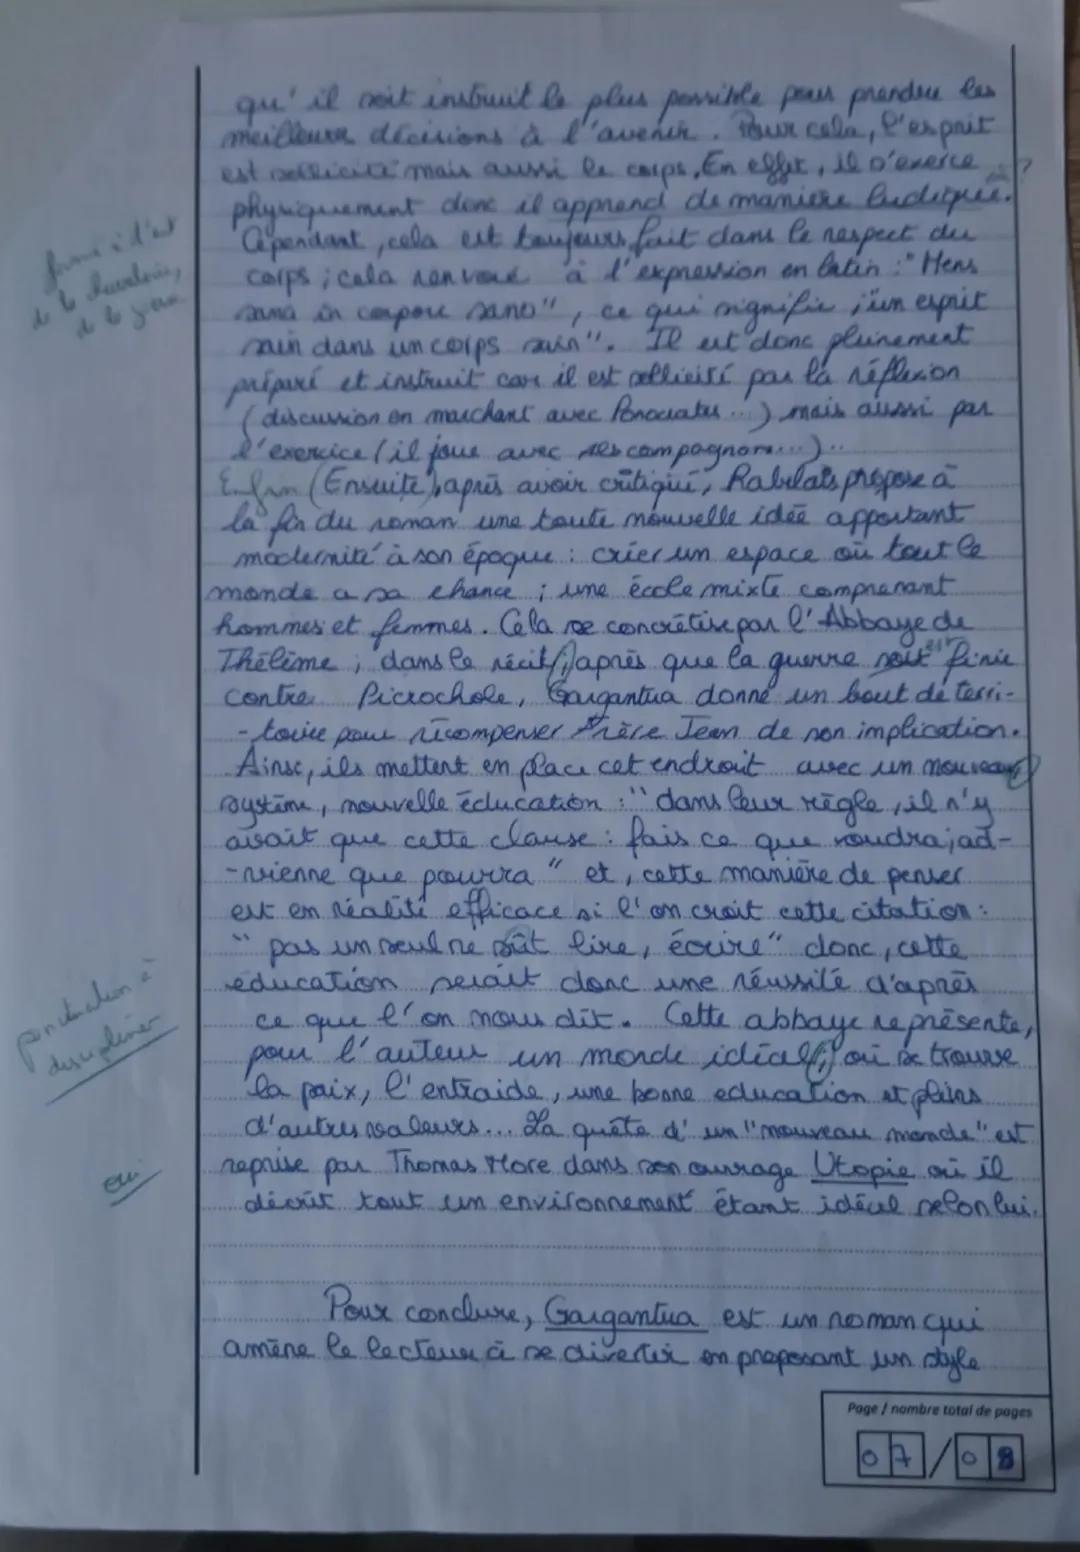 qu'il soit instruit le plus possible pour prendre les
meilleurs décisions à l'avenir. Pour cela, l'esprit
est sollicité mais aussi le corps. En effet, il s'exerce
physiquement donc il apprend de manière ludique. ?
Cependant, cela est toujours fait dans le respect du
corps ; cela renvoie à l'expression en latin : "Mens
sana in corpore sano", ce qui signifie "un esprit
sain dans un corps sain". Il est donc pleinement
préparé et instruit car il est sollicité par la réflexion
(discussion en marchant avec Ponocrates...) mais aussi par
l'exercice (il joue avec ses compagnons...)..
Enfin (Ensuite), après avoir critiqué, Rabelais propose à
la fin du roman une toute nouvelle idée apportant
modernité à son époque : créer un espace où tout le
monde a sa chance ; une école mixte comprenant
hommes et femmes. Cela se concrétise par l'Abbaye de
Thélème ; dans le récit, après que la guerre soit est finie
contre Picrochole, Gargantua donne un bout de terri-
-toire pour récompenser Frère Jean de son implication.
Ainsi, ils mettent en place cet endroit avec un nouveau
système, nouvelle éducation : "dans leur règle, il n'y
avait que cette clause : fais ce que voudra, ad-
-vienne que pourra" et, cette manière de penser
est en réalité efficace si l'on croit cette citation :
"pas un seul ne sût lire, écrire" donc, cette
éducation serait donc une réussite d'après
ce que l'on nous dit. Cette abbaye représente,
pour l'auteur un monde idéal, où se trouve
la paix, l'entraide, une bonne education et pleins
d'autres valeurs... La quête d'un "nouveau monde" est
reprise par Thomas More dans son ouvrage Utopie où il
décrit tout un environnement étant idéal selon lui.
Pour conclure, Gargantua est un roman qui
amène le lecteur à se divertir en proposant un style
de la chevalerie,
ponctuation à
discipliner
oui
Page / nombre total de pages
07/08